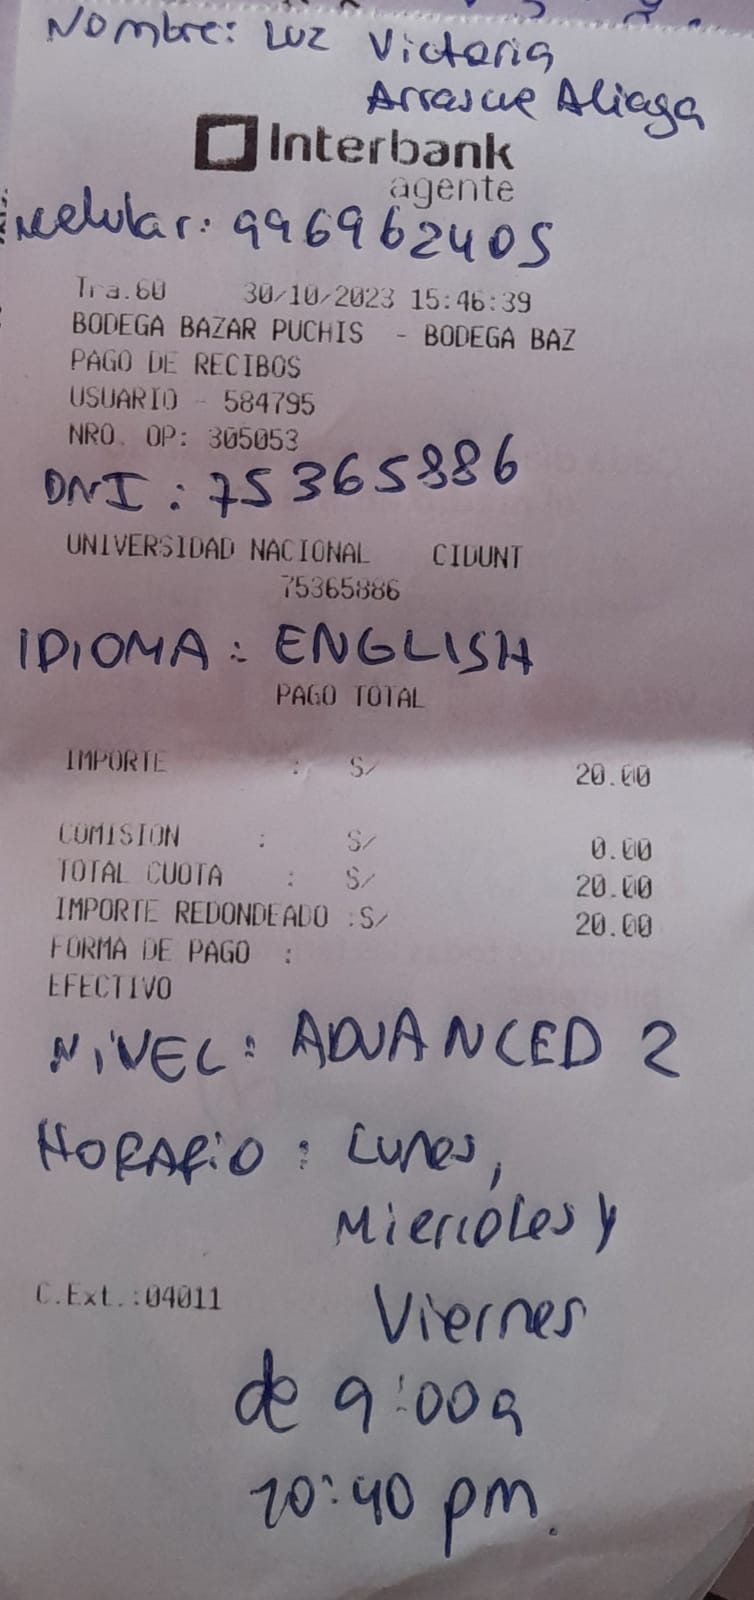 Nombre: Luz Victoria
Arrascue Aliaga
Interbank
agente
celular: 996962405
Tra.60 30/10/2023 15:46:39
BODEGA BAZAR PUCHIS - BODEGA BAZ
PAGO DE RECIBOS
USUARIO - 584795
NRO. OP: 305053
DNI: 75365886
UNIVERSIDAD NACIONAL CIDUNT
75365886
IDIOMA: ENGLISH
PAGO TOTAL
IMPORTE : S/ 20.00
COMISION : S/ 0.00
TOTAL CUOTA : S/ 20.00
IMPORTE REDONDEADO :S/ 20.00
FORMA DE PAGO :
EFECTIVO
NIVEL: ADVANCED 2
HORARIO: Lunes,
Miercoles y
C.Ext.:04011 Viernes
de 9:00 a
10:40 pm.